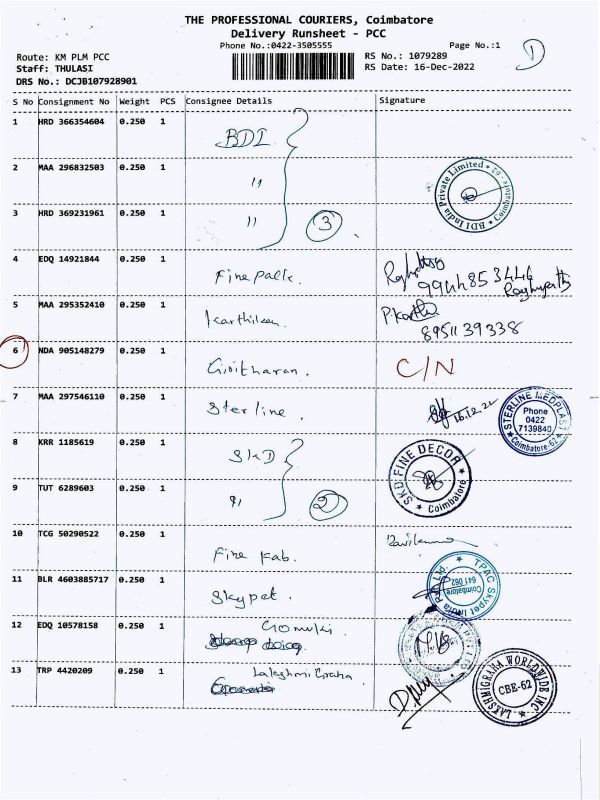 THE PROFESSIONAL COURIERS, Coimbatore
Delivery Runsheet - PCC
Phone No.:0422-3505555 Page No.:1
D
Route: KM PLM PCC RS No.: 1079289
Staff: THULASI RS Date: 16-Dec-2022
DRS No.: DCJB107928901
S No Consignment No Weight PCS Consignee Details Signature
1 HRD 366354604 0.250 1 BDI
2 MAA 296832503 0.250 1 "
BDI India Private Limited
3 HRD 369231961 0.250 1 " 3
4 EDQ 14921844 0.250 1 Finepack.
9944853446
Raghupathy
5 MAA 295352410 0.250 1 Karthikeen. P.Karthi
8951139338
6 NDA 905148279 0.250 1 C/N
7 MAA 297546110 0.250 1 Sterline. 16.12.22
STERLINE MEDPLAST Coimbatore-62
Phone
0422
7139840
8 KRR 1185619 0.250 1 SKD
SKD FINE DECOR Coimbatore
9 TUT 6289603 0.250 1 " 2
10 TCG 50290522 0.250 1 Fine Fab.
11 BLR 4603885717 0.250 1 Skypet.
TPAC Skypet India Pvt Ltd
Coimbatore
641 062
12 EDQ 10578158 0.250 1 Gomuki
13 TRP 4420209 0.250 1 Lakshmi Graha
LAKSHMIGRAHA WORLDWIDE INC.
CBE-62